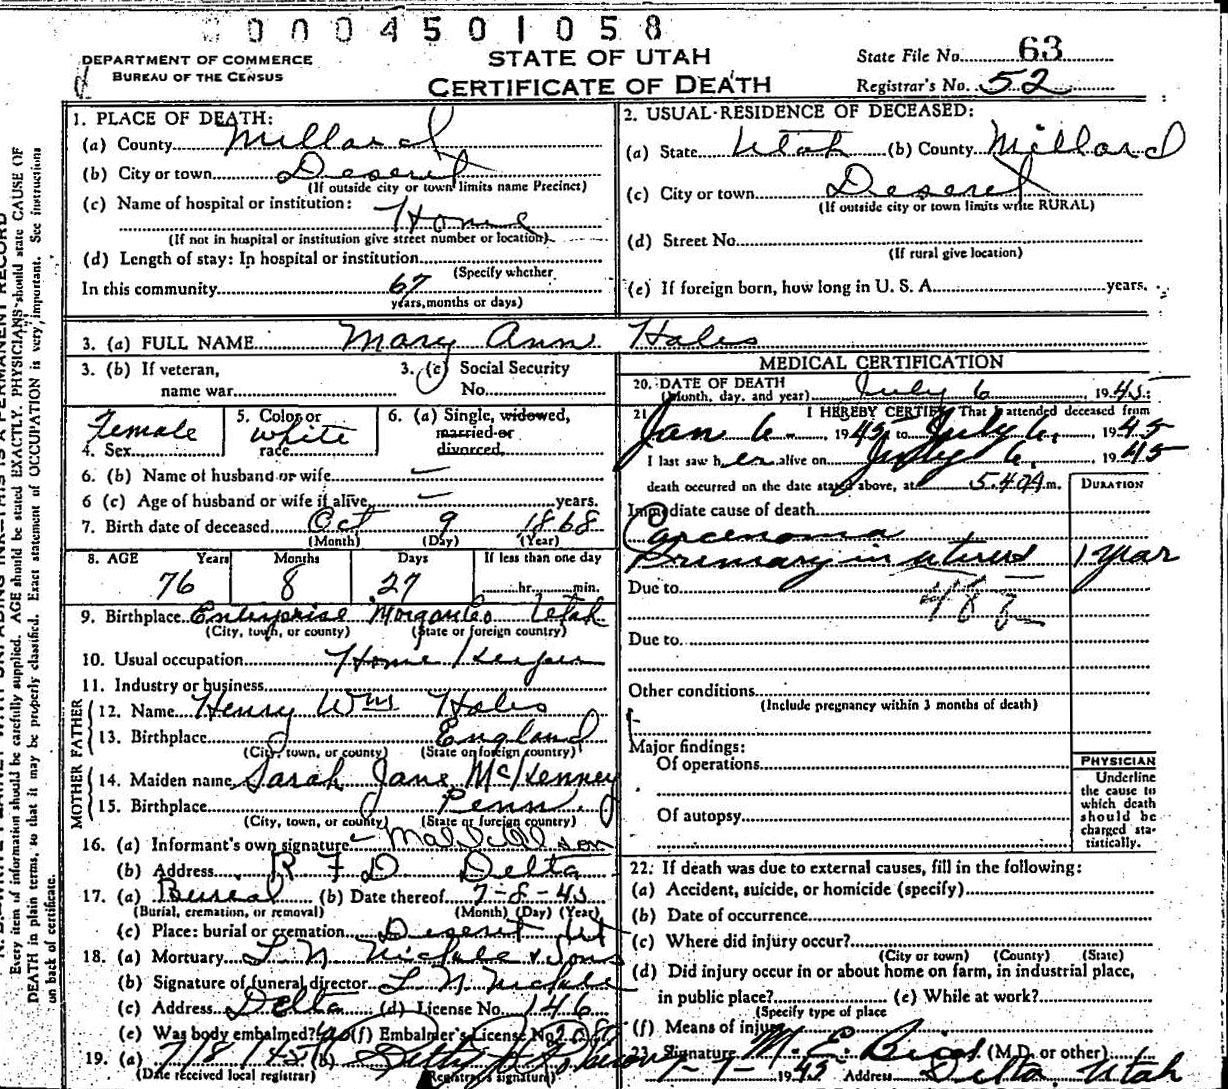 0004501058
DEPARTMENT OF COMMERCE
BUREAU OF THE CENSUS
STATE OF UTAH
CERTIFICATE OF DEATH
State File No. 63
Registrar's No. 52
1. PLACE OF DEATH:
(a) County Millard
(b) City or town Deseret
(If outside city or town limits name Precinct)
(c) Name of hospital or institution:
Home
(If not in hospital or institution give street number or location)
(d) Length of stay: In hospital or institution
(Specify whether
In this community 67
years, months or days)
2. USUAL RESIDENCE OF DECEASED:
(a) State Utah (b) County Millard
(c) City or town Deseret
(If outside city or town limits write RURAL)
(d) Street No.
(If rural give location)
(e) If foreign born, how long in U. S. A. years.
3. (a) FULL NAME Mary Ann Hales
3. (b) If veteran,
name war
3. (c) Social Security
No.
Female
4. Sex
5. Color or
white
race
6. (a) Single, widowed,
married or
divorced,
6. (b) Name of husband or wife
6 (c) Age of husband or wife if alive years.
7. Birth date of deceased Oct 9 1868
(Month) (Day) (Year)
8. AGE Years Months Days If less than one day
76 8 27 hr. min.
9. Birthplace Enterprise Morgan Co Utah
(City, town, or county) (State or foreign country)
10. Usual occupation Home Keeper
11. Industry or business
FATHER
12. Name Henry Wm Hales
13. Birthplace England
(City, town, or county) (State or foreign country)
MOTHER
14. Maiden name Sarah Jane McKenney
15. Birthplace Penn.
(City, town, or county) (State or foreign country)
16. (a) Informant's own signature
(b) Address R F D Delta
17. (a) Burial (b) Date thereof 7-8-45
(Burial, cremation, or removal) (Month) (Day) (Year)
(c) Place: burial or cremation Deseret Ut
18. (a) Mortuary L. N. & Sons
(b) Signature of funeral director L. N.
(c) Address Delta (d) License No. 146
(e) Was body embalmed? (f) Embalmer's License No.
19. (a) 7/8 1945 (b)
(Date received local registrar) (Registrar's signature)
MEDICAL CERTIFICATION
20. DATE OF DEATH
(Month, day, and year) July 6 1945
21 I HEREBY CERTIFY That I attended deceased from
Jan 6 - , 1945 to July 6, 1945
I last saw her alive on July 6, 1945
death occurred on the date stated above, at 5:40 A m.
DURATION
Immediate cause of death
Carcenoma
Primary in uterus 1 year
Due to
48
Due to
Other conditions
(Include pregnancy within 3 months of death)
Major findings:
Of operations
Of autopsy
PHYSICIAN
Underline
the cause to
which death
should be
charged sta-
tistically.
22. If death was due to external causes, fill in the following:
(a) Accident, suicide, or homicide (specify)
(b) Date of occurrence
(c) Where did injury occur?
(City or town) (County) (State)
(d) Did injury occur in or about home on farm, in industrial place,
in public place? (e) While at work?
(Specify type of place
(f) Means of injury
23. Signature M. E. Bird (M.D. or other)
1945 Address Delta, Utah
Every item of information should be carefully supplied. AGE should be stated EXACTLY. PHYSICIANS should state CAUSE OF
DEATH in plain terms, so that it may be properly classified. Exact statement of OCCUPATION is very important. See instructions
on back of certificate.